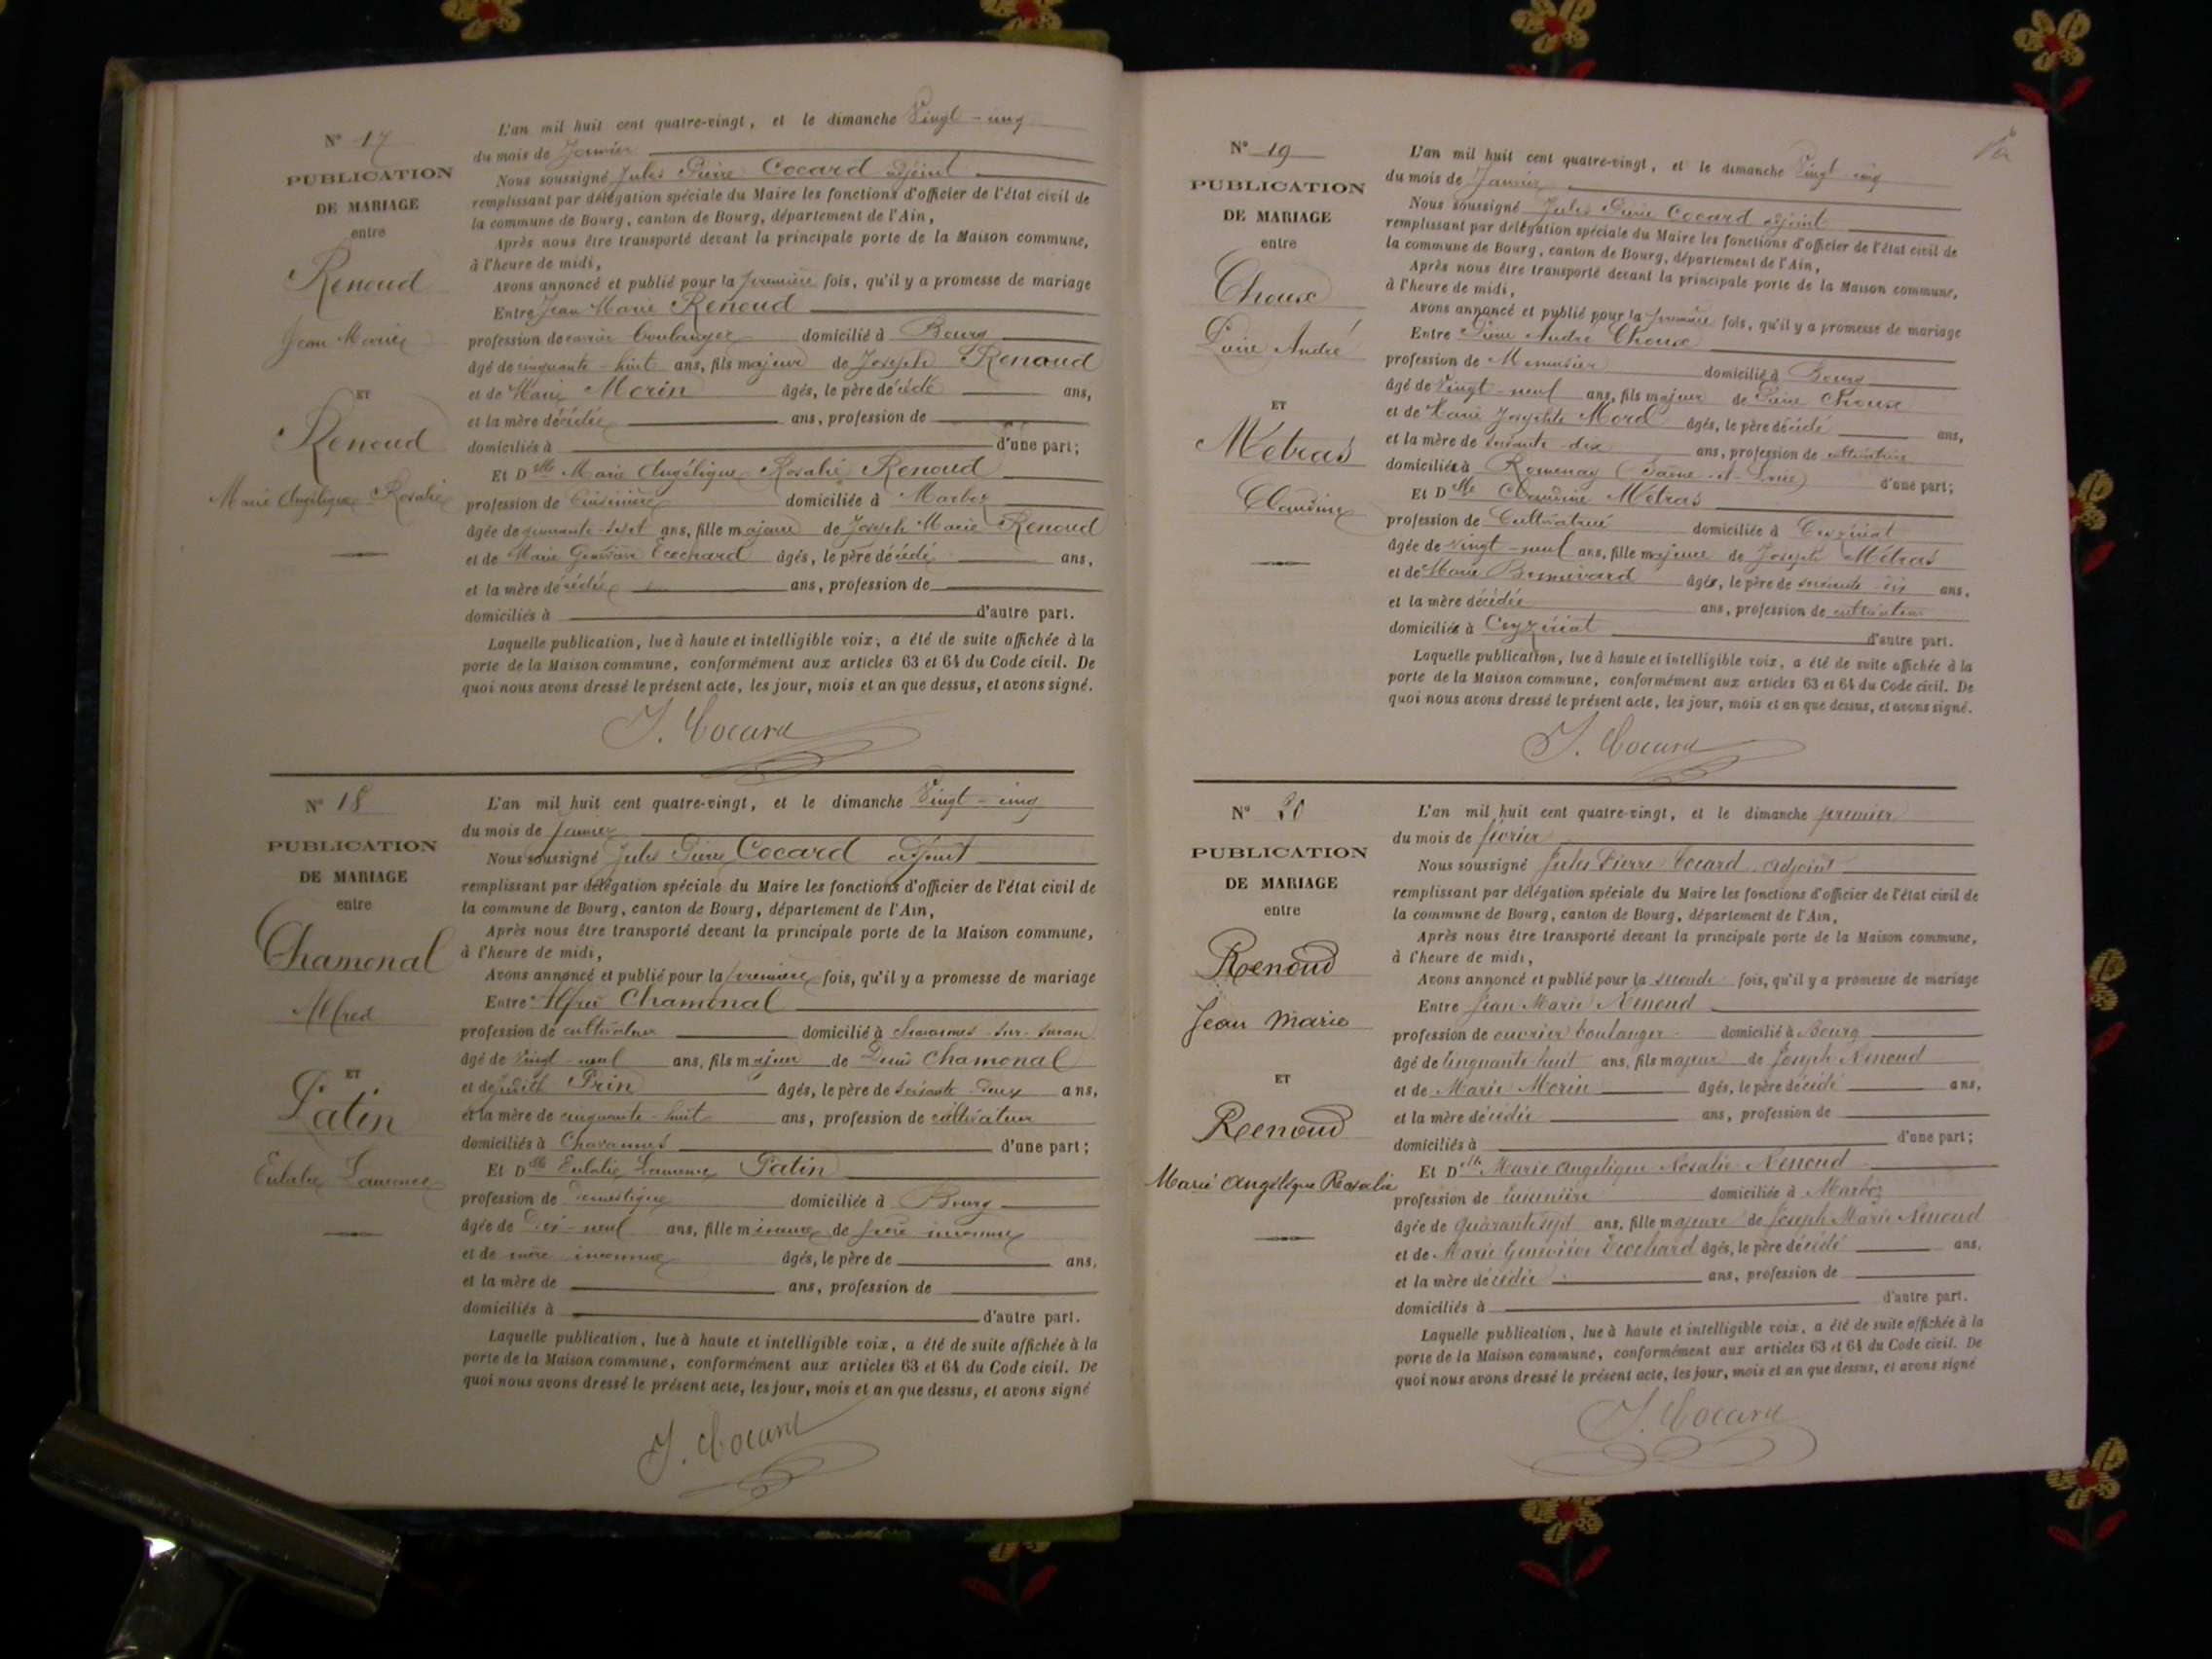 N° 17
PUBLICATION
DE MARIAGE
entre
Renoud
Jean Marie
ET
Renoud
Marie Angélique Rosalie
L'an mil huit cent quatre-vingt, et le dimanche Vingt-cinq
du mois de Janvier
Nous soussigné Jules Pierre Cocard adjoint
remplissant par délégation spéciale du Maire les fonctions d'officier de l'état civil de
la commune de Bourg, canton de Bourg, département de l'Ain,
Après nous être transporté devant la principale porte de la Maison commune,
à l'heure de midi,
Avons annoncé et publié pour la première fois, qu'il y a promesse de mariage
Entre Jean Marie Renoud
profession de ouvrier boulanger domicilié à Bourg
âgé de cinquante-huit ans, fils majeur de Joseph Renoud
et de Marie Morin âgés, le père décédé ans,
et la mère décédée ans, profession de
domiciliés à d'une part;
Et Dlle Marie Angélique Rosalie Renoud
profession de Cuisinière domiciliée à Marboz
âgée de quarante-sept ans, fille majeure de Joseph Marie Renoud
et de Marie Geneviève Ecochard âgés, le père décédé ans,
et la mère décédée ans, profession de
domiciliés à d'autre part.
Laquelle publication, lue à haute et intelligible voix, a été de suite affichée à la
porte de la Maison commune, conformément aux articles 63 et 64 du Code civil. De
quoi nous avons dressé le présent acte, les jour, mois et an que dessus, et avons signé.
J. Cocard
N° 18
PUBLICATION
DE MARIAGE
entre
Chamonal
Alfred
ET
Patin
Eulalie Laurence
L'an mil huit cent quatre-vingt, et le dimanche Vingt-cinq
du mois de Janvier
Nous soussigné Jules Pierre Cocard adjoint
remplissant par délégation spéciale du Maire les fonctions d'officier de l'état civil de
la commune de Bourg, canton de Bourg, département de l'Ain,
Après nous être transporté devant la principale porte de la Maison commune,
à l'heure de midi,
Avons annoncé et publié pour la première fois, qu'il y a promesse de mariage
Entre Alfred Chamonal
profession de cultivateur domicilié à Chavannes-sur-Suran
âgé de Vingt-neuf ans, fils majeur de Denis Chamonal
et de Judith Prin âgés, le père de soixante-deux ans,
et la mère de cinquante-huit ans, profession de cultivateur
domiciliés à Chavannes d'une part;
Et Dlle Eulalie Laurence Patin
profession de Domestique domiciliée à Bourg
âgée de Dix-neuf ans, fille mineure de père inconnu
et de mère inconnue âgés, le père de ans,
et la mère de ans, profession de
domiciliés à d'autre part.
Laquelle publication, lue à haute et intelligible voix, a été de suite affichée à la
porte de la Maison commune, conformément aux articles 63 et 64 du Code civil. De
quoi nous avons dressé le présent acte, les jour, mois et an que dessus, et avons signé
J. Cocard
N° 19
PUBLICATION
DE MARIAGE
entre
Choux
Pierre André
ET
Métras
Claudine
L'an mil huit cent quatre-vingt, et le dimanche Vingt-cinq
du mois de Janvier
Nous soussigné Jules Pierre Cocard adjoint
remplissant par délégation spéciale du Maire les fonctions d'officier de l'état civil de
la commune de Bourg, canton de Bourg, département de l'Ain,
Après nous être transporté devant la principale porte de la Maison commune,
à l'heure de midi,
Avons annoncé et publié pour la première fois, qu'il y a promesse de mariage
Entre Pierre André Choux
profession de Menuisier domicilié à Bourg
âgé de Vingt-neuf ans, fils majeur de Pierre Choux
et de Marie Josephte Morel âgés, le père décédé ans,
et la mère de soixante-dix ans, profession de cultivatrice
domiciliés à Romenay (Saône-et-Loire) d'une part;
Et Dlle Claudine Métras
profession de Cultivatrice domiciliée à Ceyzériat
âgée de vingt-neuf ans, fille majeure de Joseph Métras
et de Marie Bonnivard âgés, le père de soixante-dix ans,
et la mère décédée ans, profession de cultivateur
domiciliés à Ceyzériat d'autre part.
Laquelle publication, lue à haute et intelligible voix, a été de suite affichée à la
porte de la Maison commune, conformément aux articles 63 et 64 du Code civil. De
quoi nous avons dressé le présent acte, les jour, mois et an que dessus, et avons signé.
J. Cocard
N° 20
PUBLICATION
DE MARIAGE
entre
Renoud
Jean Marie
ET
Renoud
Marie Angélique Rosalie
L'an mil huit cent quatre-vingt, et le dimanche premier
du mois de février
Nous soussigné Jules Pierre Cocard Adjoint
remplissant par délégation spéciale du Maire les fonctions d'officier de l'état civil de
la commune de Bourg, canton de Bourg, département de l'Ain,
Après nous être transporté devant la principale porte de la Maison commune,
à l'heure de midi,
Avons annoncé et publié pour la seconde fois, qu'il y a promesse de mariage
Entre Jean Marie Renoud
profession de ouvrier boulanger domicilié à Bourg
âgé de Cinquante huit ans, fils majeur de Joseph Renoud
et de Marie Morin âgés, le père décédé ans,
et la mère décédée ans, profession de
domiciliés à d'une part;
Et Dlle Marie Angelique Rosalie Renoud
profession de Cuisinière domiciliée à Marboz
âgée de quarante sept ans, fille majeure de Joseph Marie Renoud
et de Marie Geneviève Ecochard âgés, le père décédé ans,
et la mère décédée ans, profession de
domiciliés à d'autre part.
Laquelle publication, lue à haute et intelligible voix, a été de suite affichée à la
porte de la Maison commune, conformément aux articles 63 et 64 du Code civil. De
quoi nous avons dressé le présent acte, les jour, mois et an que dessus, et avons signé
J. Cocard